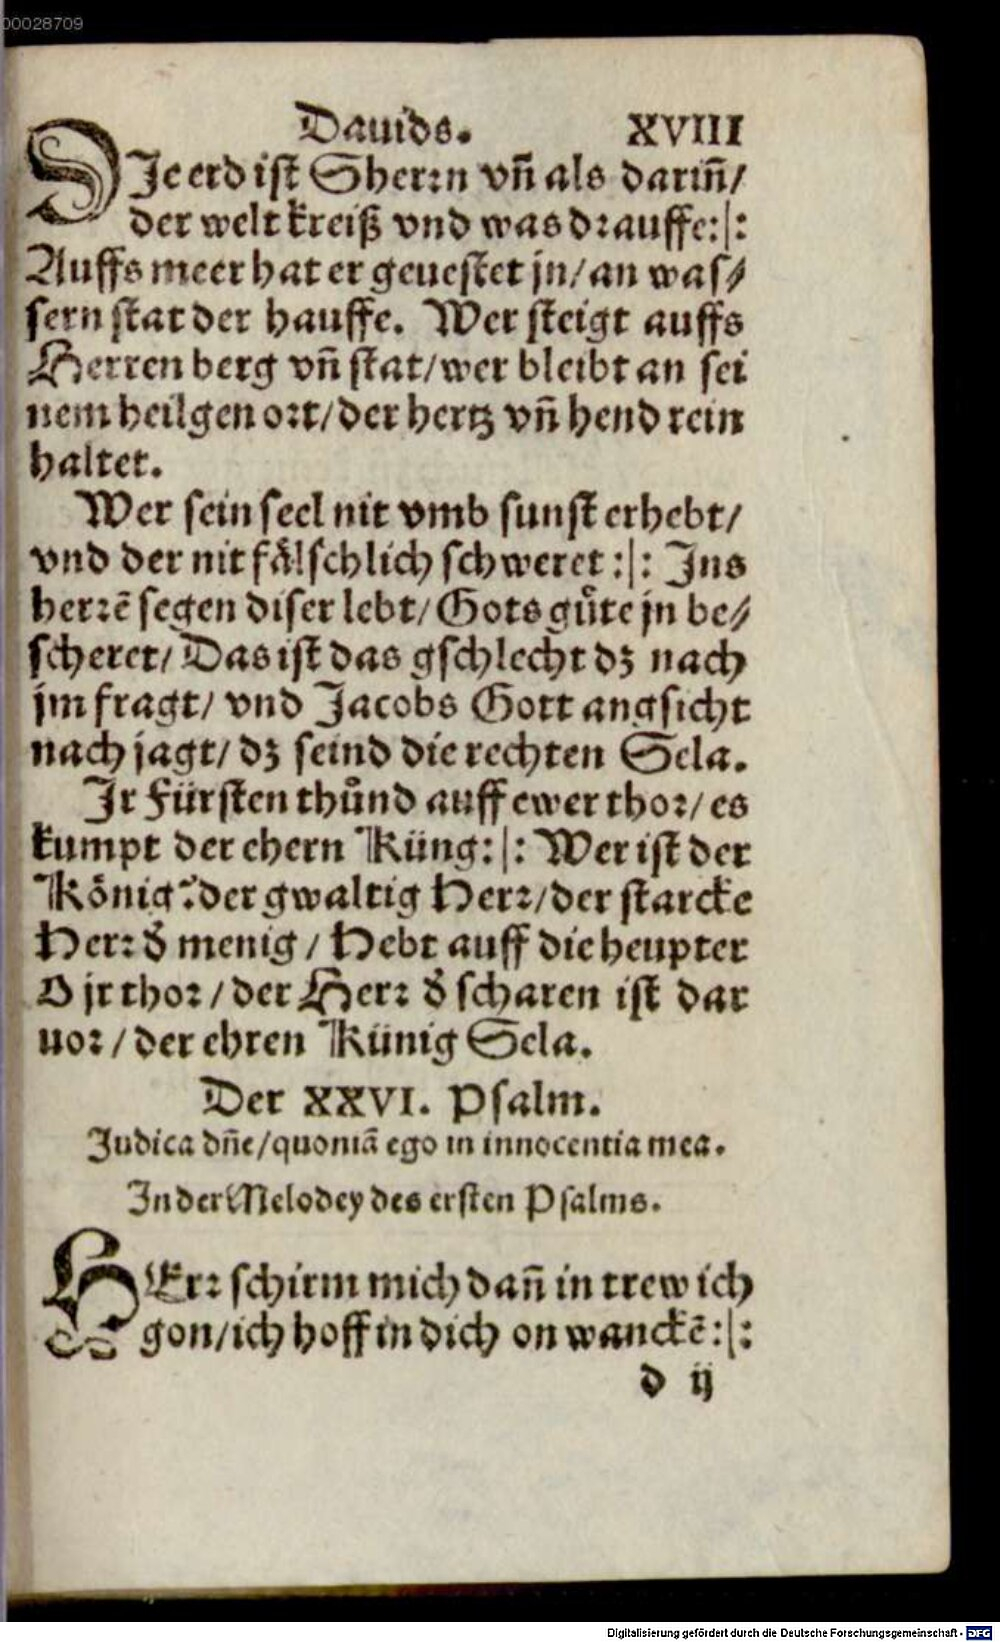 00028709
Dauids. XVIII
DIe erd ist Sherrn vñ als dariñ/
der welt kreiß vnd was drauffe:|:
Auffs meer hat er geuestet jn/an was⸗
sern stat der hauffe. Wer steigt auffs
Herren berg vñ stat/wer bleibt an sei
nem heilgen ort/der hertz vñ hend rein
haltet.
Wer sein seel nit vmb sunst erhebt/
vnd der nit fälschlich schweret:|: Ins
herrē segen diser lebt/Gots guͤte jn be⸗
scheret/Das ist das gschlecht dz nach
jm fragt/vnd Jacobs Gott angsicht
nach jagt/dz seind die rechten Sela.
Ir Fürsten thuͦnd auff ewer thor/es
kumpt der ehern Küng:|: Wer ist der
König? der gwaltig Herr/der starcke
Herr d̕ menig/Hebt auff die heupter
O jr thor/der Herr d̕ scharen ist dar
uor/der ehren Künig Sela.
Der XXVI. Psalm.
Iudica dñe/quoniā ego in innocentia mea.
In der Melodey des ersten Psalms.
HErr schirm mich dañ in trew ich
gon/ich hoff in dich on wanckē:|:
d ij
Digitalisierung gefördert durch die Deutsche Forschungsgemeinschaft - DFG